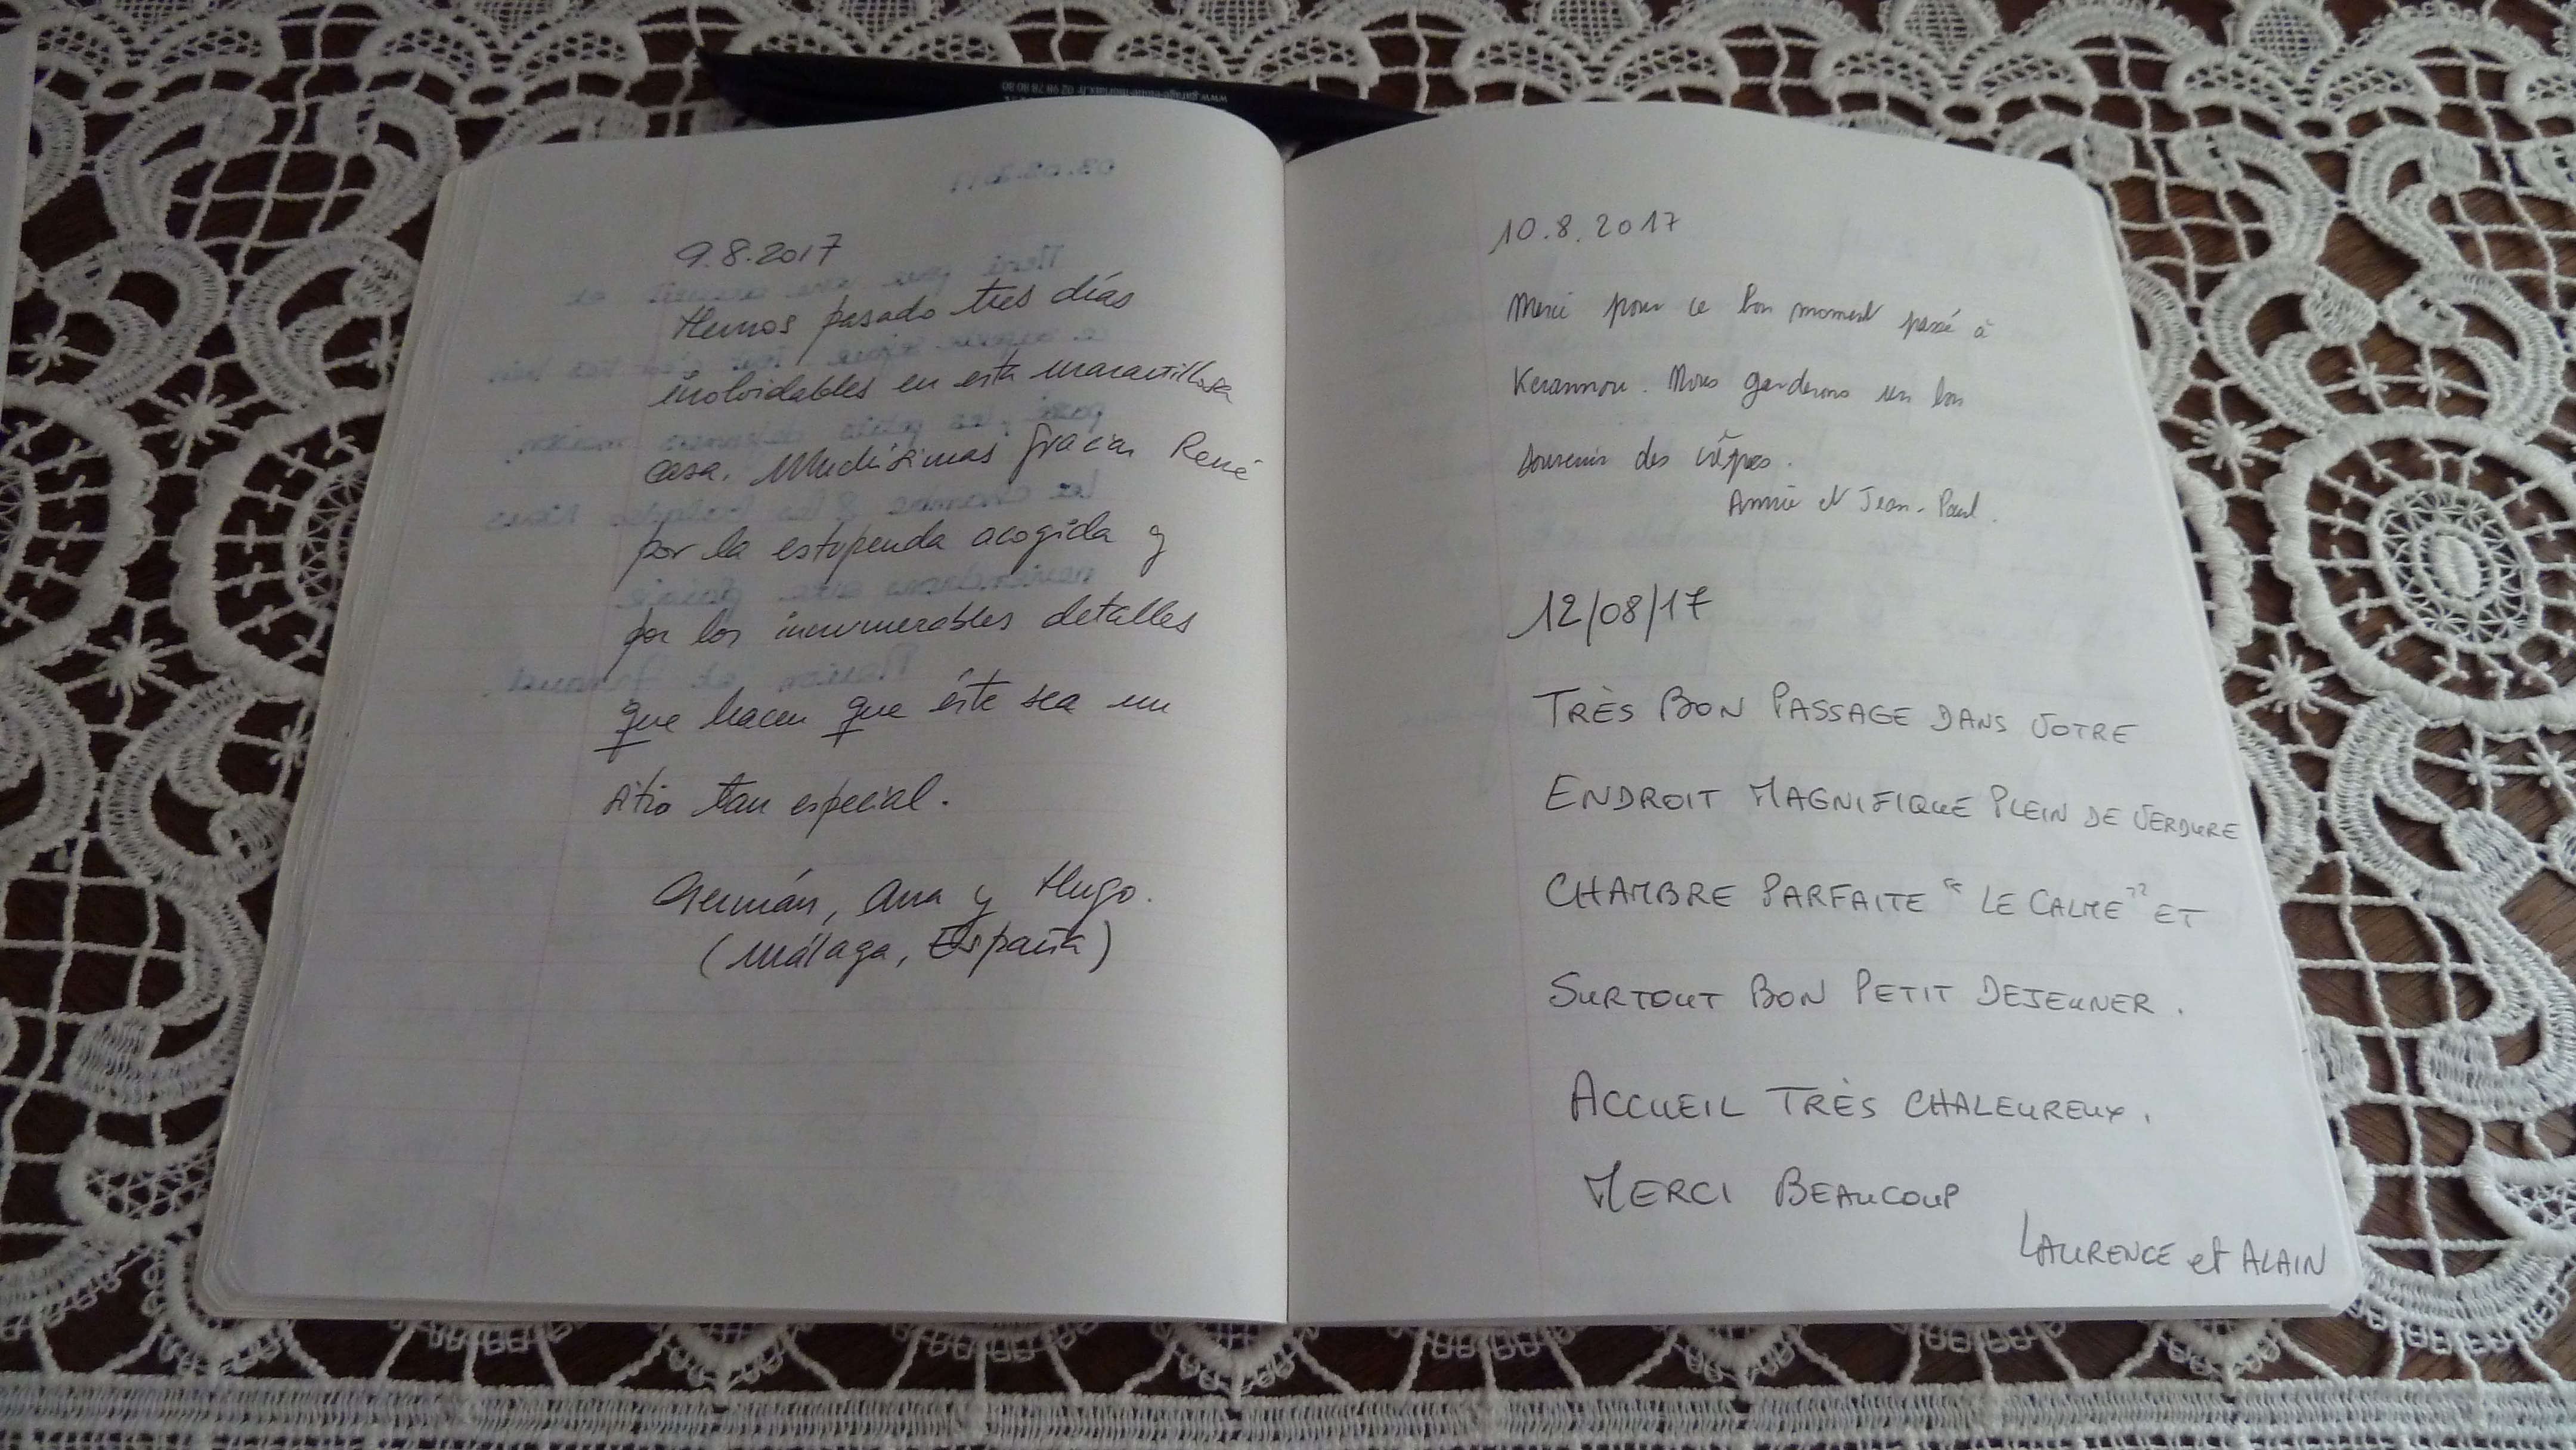 www.garage-etoile-morlaix.fr 02 98 78 80 80
9.8.2017
Hemos pasado tres días
inolvidables en esta maravillosa
casa. Muchísimas gracias René
por la estupenda acogida y
por los innumerables detalles
que hacen que éste sea un
sitio tan especial.
Germán, Ana y Hugo.
(Málaga, España)
10.8.2017
Merci pour ce bon moment passé à
Kerannou. Nous garderons un bon
souvenir des crêpes.
Annie et Jean-Paul.
12/08/17
TRÈS BON PASSAGE DANS VOTRE
ENDROIT MAGNIFIQUE PLEIN DE VERDURE
CHAMBRE PARFAITE "LE CALME" ET
SURTOUT BON PETIT DEJEUNER.
ACCUEIL TRÈS CHALEUREUX.
MERCI BEAUCOUP
LAURENCE et ALAIN